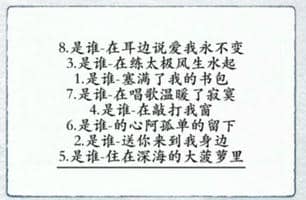 8.是谁-在耳边说爱我永不变
3.是谁-在练太极风生水起
1.是谁-塞满了我的书包
7.是谁-在唱歌温暖了寂寞
4.是谁-在敲打我窗
6.是谁-的心阿孤单的留下
2.是谁-送你来到我身边
5.是谁-住在深海的大菠萝里